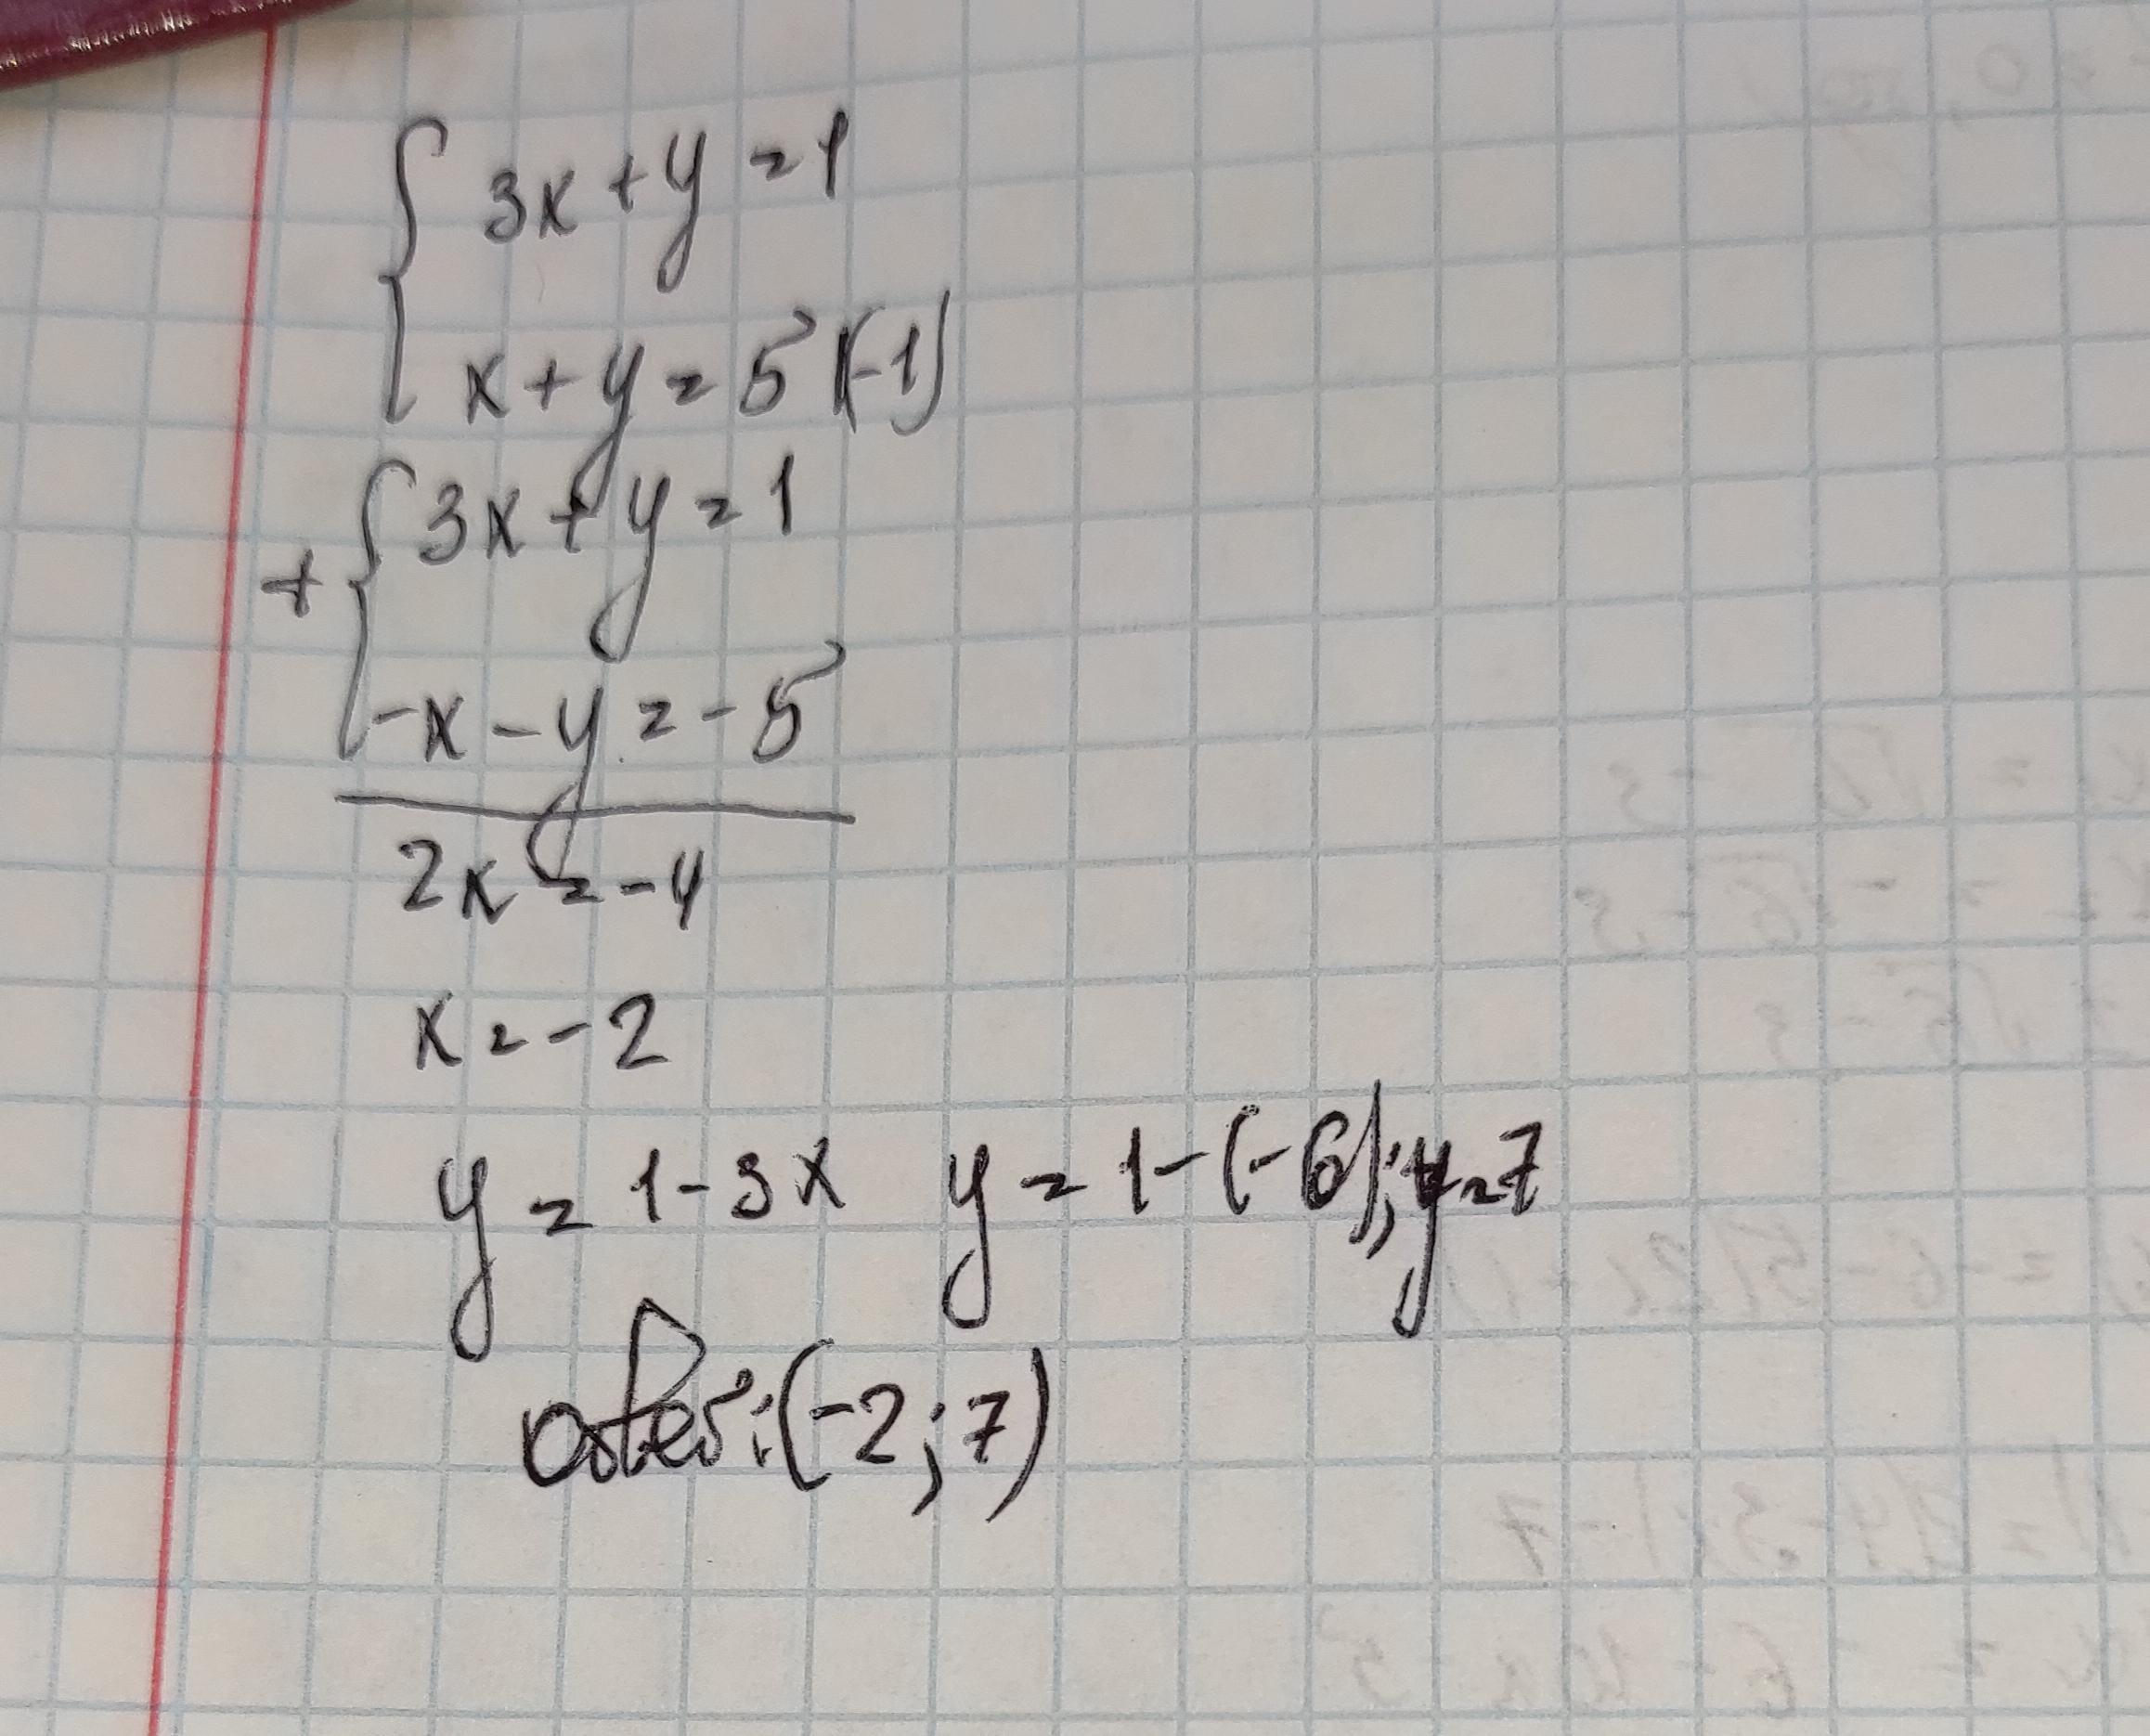 { 3x + y = 1
x + y = 5 |(-1)
+ { 3x + y = 1
-x - y = -5
2x = -4
x = -2
y = 1 - 3x y = 1 - (-6); y = 7
ответ: (-2; 7)